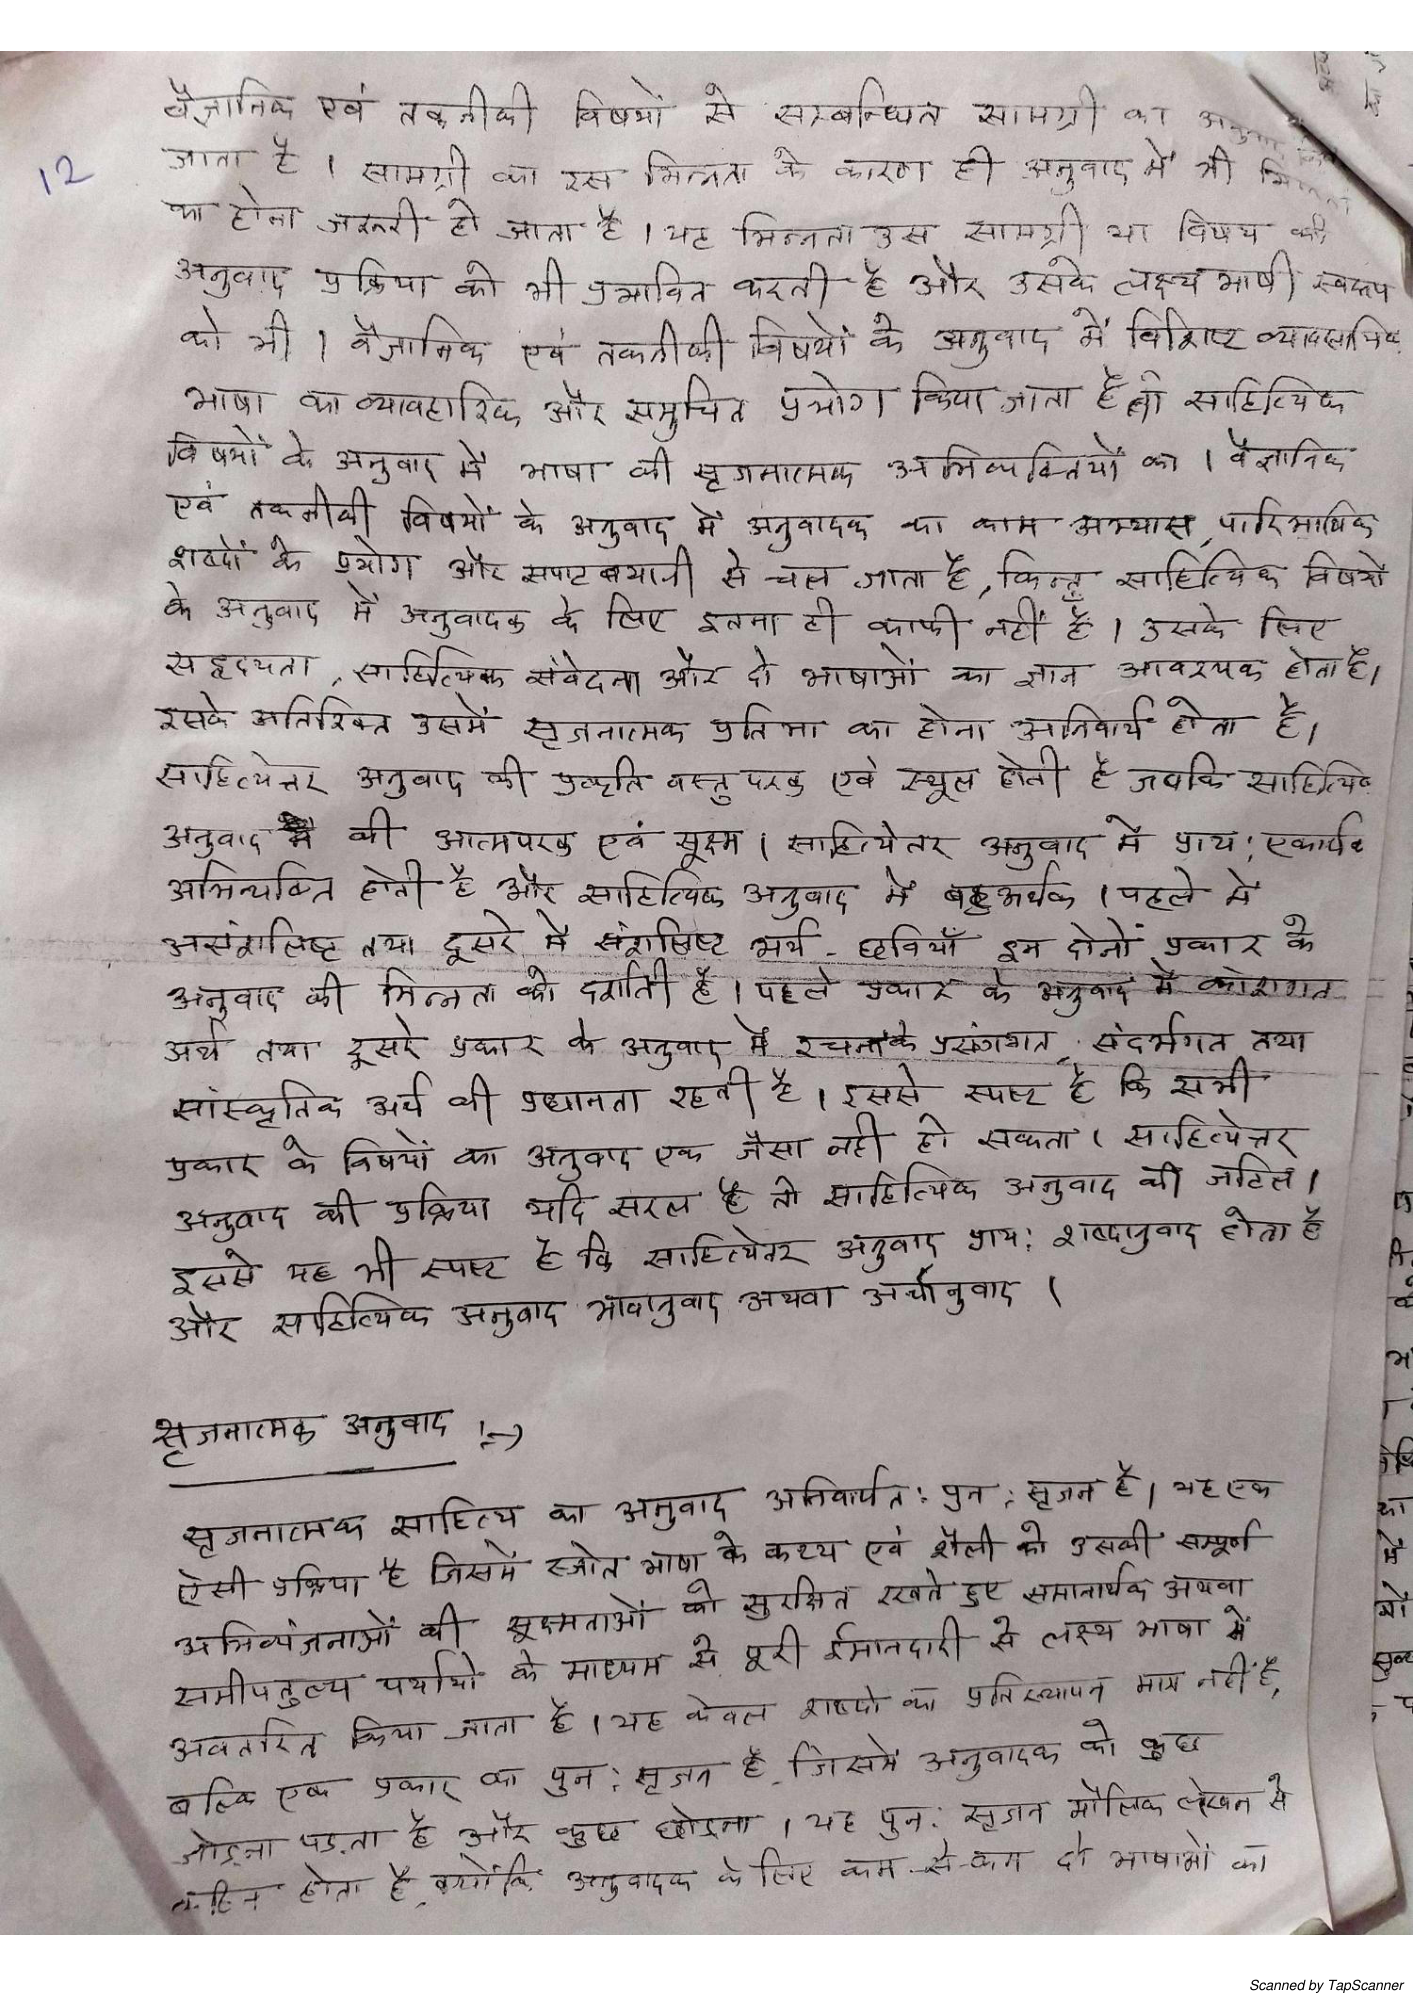 वैज्ञानिक एवं तकनीकी विषयों से सम्बन्धित सामग्री का
12
जाता है । सामग्री का रस भिन्नता के कारण ही अनुवाद में भी
का होना जरूरी हो जाता है । यह भिन्नता उस सामग्री या विषय की
अनुवाद प्रक्रिया को भी प्रभावित करती है और उसके लक्ष्य भाषी स्वरूप
को भी । वैज्ञानिक एवं तकनीकी विषयों के अनुवाद में विशिष्ट व्यावसायिक
भाषा का व्यावहारिक और समुचित प्रयोग किया जाता है तो साहित्यिक
विषयों के अनुवाद में भाषा की सृजनात्मक अभिव्यक्तियों का । वैज्ञानिक
एवं तकनीकी विषयों के अनुवाद में अनुवादक का काम अभ्यास, पारिभाषिक
शब्दों के प्रयोग और सपाटबयानी से चल जाता है, किन्तु साहित्यिक विषयों
के अनुवाद में अनुवादक के लिए इतना ही काफी नहीं है । उसके लिए
सहृदयता, साहित्यिक संवेदना और दो भाषाओं का ज्ञान आवश्यक होता है।
इसके अतिरिक्त उसमें सृजनात्मक प्रतिभा का होना अनिवार्य होता है।
साहित्येत्तर अनुवाद की प्रकृति वस्तुपरक एवं स्थूल होती है जबकि साहित्यिक
अनुवाद की आत्मपरक एवं सूक्ष्म । साहित्येतर अनुवाद में प्राय: एकार्थक
अभिव्यक्ति होती है और साहित्यिक अनुवाद में बहुअर्थक । पहले में
असंश्लिष्ट तथा दूसरे में संश्लिष्ट अर्थ - छवियाँ इन दोनों प्रकार के
अनुवाद की भिन्नता को दर्शाती है । पहले प्रकार के अनुवाद में कोशगत
अर्थ तथा दूसरे प्रकार के अनुवाद में रचना के प्रसंगगत, संदर्भगत तथा
सांस्कृतिक अर्थ की प्रधानता रहती है । इससे स्पष्ट है कि सभी
प्रकार के विषयों का अनुवाद एक जैसा नहीं हो सकता । साहित्येत्तर
अनुवाद की प्रक्रिया यदि सरल है तो साहित्यिक अनुवाद की जटिल ।
इससे यह भी स्पष्ट है कि साहित्येतर अनुवाद प्राय: शब्दानुवाद होता है
और साहित्यिक अनुवाद भावानुवाद अथवा अर्थानुवाद ।
सृजनात्मक अनुवाद :-)
सृजनात्मक साहित्य का अनुवाद अनिवार्यत: पुन: सृजन है । यह एक
ऐसी प्रक्रिया है जिसमें स्त्रोत भाषा के कथ्य एवं शैली को उसकी सम्पूर्ण
अभिव्यंजनाओं की सूक्ष्मताओं को सुरक्षित रखते हुए समानार्थक अथवा
समीपतुल्य पर्यायों के माध्यम से पूरी ईमानदारी से लक्ष्य भाषा में
अवतरित किया जाता है । यह केवल शब्दों का प्रतिस्थापन मात्र नहीं है,
बल्कि एक प्रकार का पुन: सृजन है, जिसमें अनुवादक को कुछ
जोड़ना पड़ता है और कुछ छोड़ना । यह पुन: सृजन मौलिक लेखन से
कठिन होता है, क्योंकि अनुवादक के लिए कम-से-कम दो भाषाओं का
Scanned by TapScanner